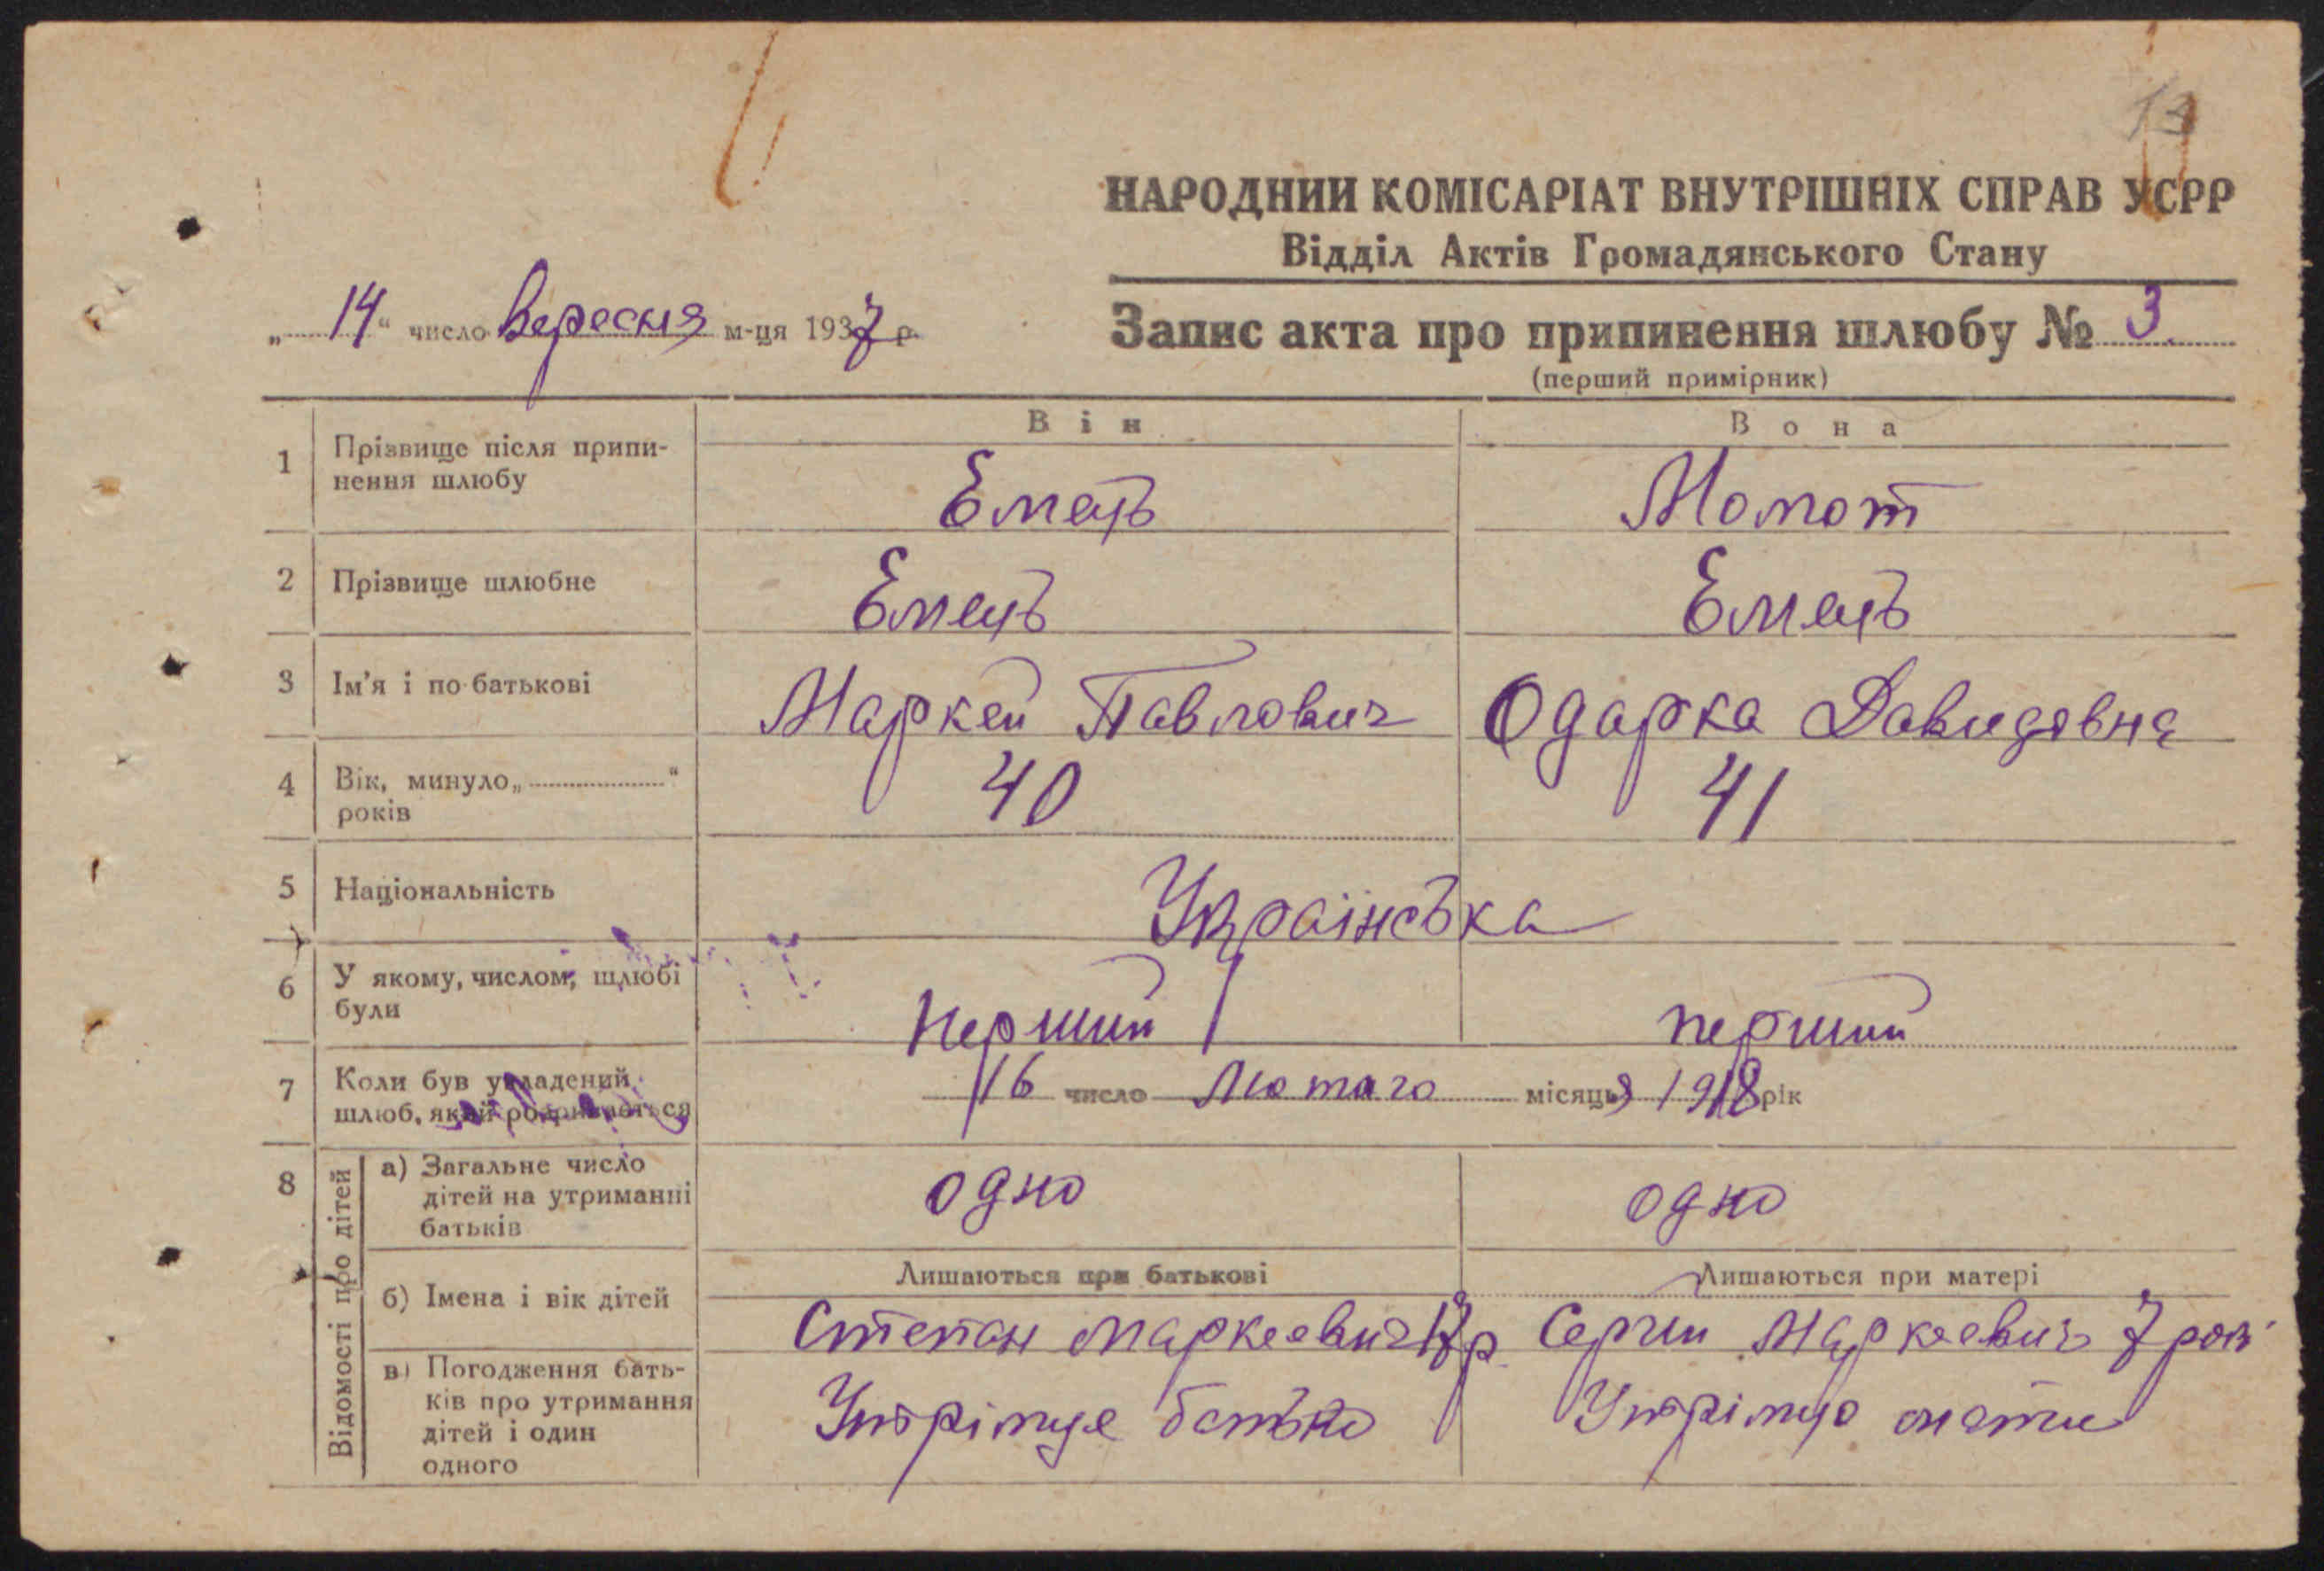 13
НАРОДНИЙ КОМІСАРІАТ ВНУТРІШНІХ СПРАВ УСРР
Відділ Актів Громадянського Стану
„ 14 “ число Вересня м-ця 1937 р.
Запис акта про припинення шлюбу № 3
(перший примірник)
Він Вона
1 Прізвище після припи-
нення шлюбу Емець Момот
2 Прізвище шлюбне Емець Емець
3 Ім'я і по-батькові Маркей Павлович Одарка Давидовна
4 Вік, минуло „ “
років 40 41
5 Національність Українська
6 У якому, числом, шлюбі
були Перший перший
7 Коли був укладений
шлюб, який розривається 16 число Лютого місяця 1918 рік
8 Відомості про дітей
а) Загальне число
дітей на утриманні
батьків одно одно
Лишаються при батькові Лишаються при матері
б) Імена і вік дітей Степан Маркеевич 17 р. Сергий Маркеевич 7 рок
в) Погодження бать-
ків про утримання
дітей і один
одного Утрімує батько Утрімує мати